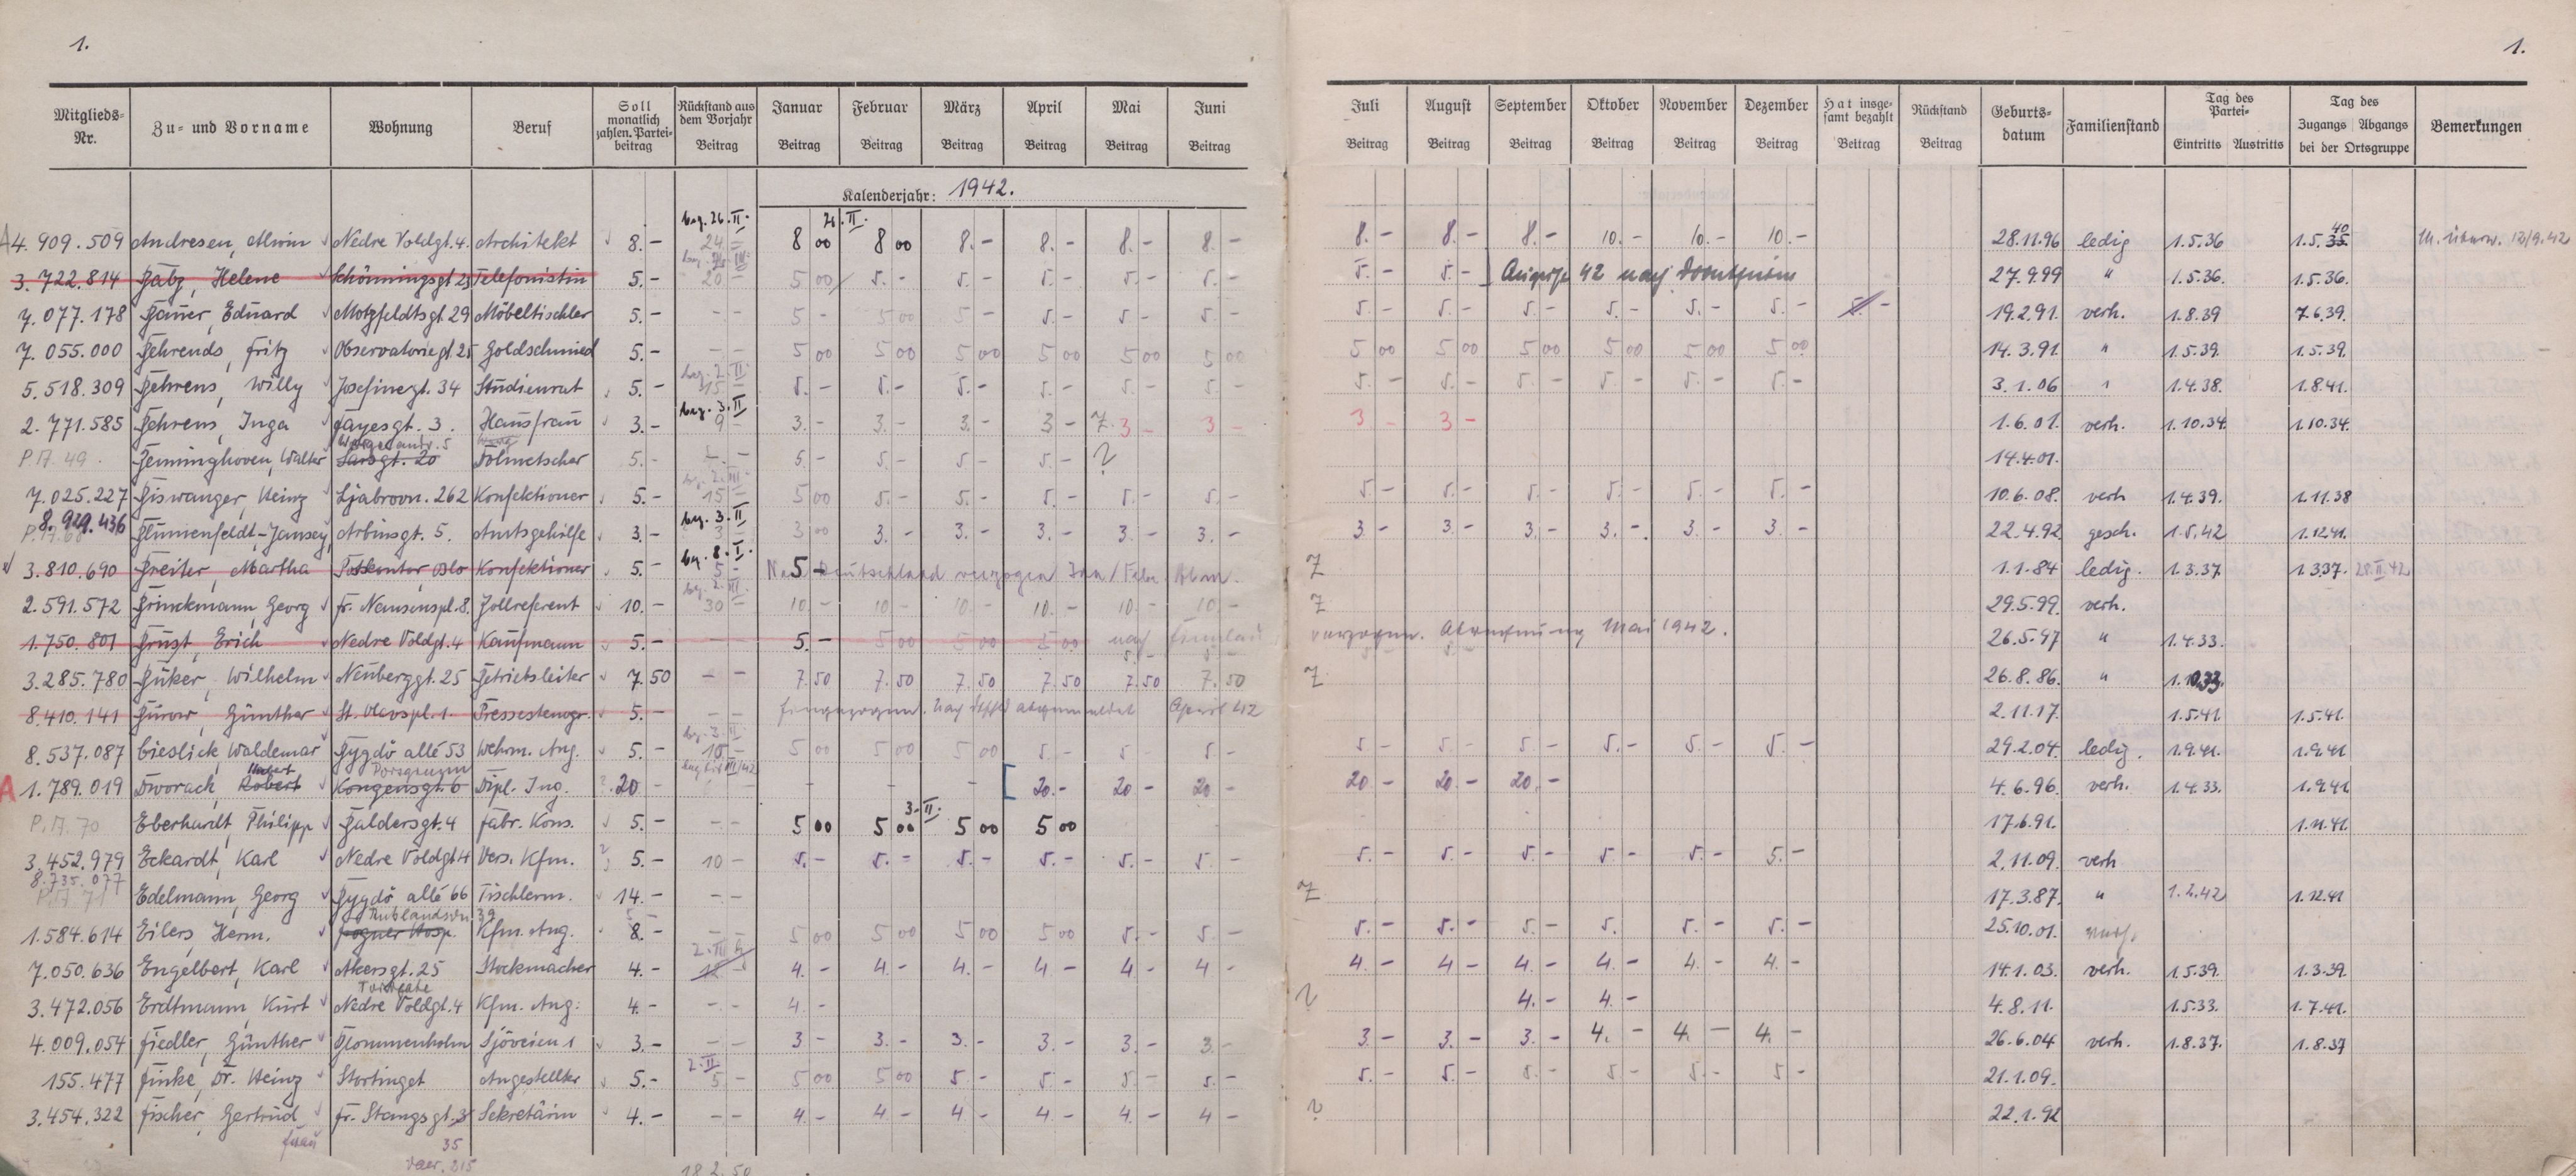 1. 1.
Mitglieds-Nr. Zu- und Vorname Wohnung Beruf Soll monatlich zahlen. Parteibeitrag Rückstand aus dem Vorjahr Beitrag Januar Beitrag Februar Beitrag März Beitrag April Beitrag Mai Beitrag Juni Beitrag Juli Beitrag August Beitrag September Beitrag Oktober Beitrag November Beitrag Dezember Beitrag Hat insgesamt bezahlt Beitrag Rückstand Beitrag Geburtsdatum Familienstand Tag des Partei- Eintritts Austritts Tag des Zugangs Abgangs bei der Ortsgruppe Bemerkungen
Kalenderjahr: 1942.
bez. 26.II. II.
A 4.909.509 Andresen, Alwin Nedre Voldgt. 4. Architekt 8.- 24 - 8 00 8 00 8.- 8.- 8.- 8.- 8.- 8.- 8.- 10.- 10.- 10.- 28.11.96 ledig 1.5.36 1.5.35 40 12/9.42
3.722.814 Babz, Helene Schönningsgt 25 Telefonistin 5.- 20 - 5 00 5.- 5.- 5.- 5.- 5.- 5.- 5.- August 42 nach Drontheim 27.9.99 " 1.5.36. 1.5.36.
7.077.178 Bauer, Eduard Motzfeldtsgt. 29 Möbeltischler 5.- - - 5 - 5 00 5 - 5.- 5.- 5.- 5.- 5.- 5.- 5.- 5.- 5.- 5.- 19.2.91. verh. 1.8.39 7.6.39.
7.055.000 Behrends, Fritz Observatoriegt 25 Goldschmied 5.- - - 5 00 5 00 5 00 5 00 5 00 5 00 5 00 5 00 5 00 5 00 5 00 5 00 14.3.91. " 1.5.39. 1.5.39.
bez. 2.II.
5.518.309 Behrens, Willy Josefinegt. 34 Studienrat 5.- 15 - 5.- 5.- 5.- 5.- 5.- 5.- 5.- 5.- 5.- 5.- 5.- 5.- 3.1.06 " 1.4.38. 1.8.41.
bez. 3.II
2.771.585 Behrens, Inga Fayesgt. 3. Hausfrau 3.- 9 - 3.- 3.- 3.- 3 - 3 - 3 - 3 - 3 - 1.6.01. verh. 1.10.34. 1.10.34.
P.A. 49. Benninghoven, Walter Sarsgt. 20 Dolmetscher 5.- 5 - 5.- 5 - 5.- ? 14.4.01.
7.025.227 Biswanger, Heinz Ljabrovn. 262 Konfektioner 5.- 15 - 5 00 5.- 5.- 5.- 5.- 5.- 5.- 5.- 5.- 5.- 5.- 5.- 10.6.08. verh 1.4.39. 1.11.38
8.929.436 bez. 3.II
Blumenfeldt-Jansey, Arbinsgt. 5. Amtsgehilfe 3.- 3 - 3 00 3.- 3.- 3.- 3.- 3.- 3 - 3.- 3.- 3.- 3 - 3.- 22.4.92. gesch. 1.5.42 1.12.41.
bez. 8.I.
3.810.690 Breiter, Martha Postkontor Oslo Konfektioner 5.- 5 - 5 - Nach Deutschland verzogen Jan/Febr. Abm. 1.1.84 ledig. 1.3.37. 1.3.37. 28.II.42
2.591.572 Brinckmann, Georg Fr. Nansenspl. 8. Zollreferent 10.- 30 - 10 - 10 - 10 - 10.- 10.- 10 - 29.5.99. verh.
1.750.801 Brust, Erich Nedre Voldgt. 4 Kaufmann 5.- - - 5.- 5 00 5 00 5 00 nach Finnland verzogen. Abrechnung Mai 1942. 26.5.97 " 1.4.33.
3.285.780 Büker, Wilhelm Neuberggt. 25 Betriebsleiter 7.50 - - 7.50 7.50 7.50 7.50 7.50 7.50 26.8.86. "
8.410.141 Burow, Günther St. Olavspl. 1. Pressestenogr. 5.- - - Eingezogen. April 42 2.11.17. 1.5.41. 1.5.41.
bez. 3.II.
8.537.087 Cieslick, Waldemar Bygdö allé 53 Wehrm. Ang. 5.- 10 - 5 00 5 00 5 00 5.- 5 5.- 5 - 5.- 5 - 5.- 5.- 5.- 29.2.04 ledig. 1.9.41. 1.9.41
A 1.789.019 Dworack, Robert Kongensgt. 6 Dipl. Ing. ? 20 - - - - 20.- 20 - 20 - 20 - 20 - 20.- 4.6.96. verh. 1.4.33. 1.9.41
3.II.
P.A. 70 Eberhardt, Philipp Baldersgt. 4 Fabr. Kons. 5.- - - 5 00 5 00 5 00 5 00 17.6.91. 1.11.41.
3.452.979 Eckardt, Karl Nedre Voldgt 4 Vers. Kfm. 5.- 10 - 5.- 5.- 5.- 5.- 5.- 5.- 5.- 5.- 5.- 5.- 5.- 5.- 2.11.09. verh
8.735.077
P.A. 71 Edelmann, Georg Bygdö allé 66 Tischlerm. 14.- - - 17.3.87. " 1.2.42 1.12.41
1.584.614 Eilers, Herm. Kfm. Ang. 8.- - - 5 00 5 00 5 00 5 00 5.- 5 - 5.- 5.- 5.- 5. 5.- 5.- 25.10.01.
7.050.636 Engelbert, Karl Akersgt. 25 Stockmacher 4.- 4.- 4.- 4.- 4.- 4.- 4 - 4.- 4 - 4.- 4.- 4.- 4.- 14.1.03. verh. 1.5.39. 1.3.39.
3.472.056 Erdtmann, Kurt Nedre Voldgt. 4 Kfm. Ang. 4.- - - 4.- 4.- 4.- 4.8.11. 1.5.33. 1.7.41.
4.009.054 Fiedler, Günther Blommenholm Sjöveien 1 3.- - - 3 - 3.- 3.- 3.- 3.- 3.- 3.- 3.- 3.- 4.- 4.- 4.- 26.6.04 verh. 1.8.37. 1.8.37
2.II
155.477 Finke, Dr. Heinz Stortinget Angestellter 5.- 5 - 5 00 5 00 5.- 5.- 5.- 5.- 5.- 5.- 5.- 5 - 5.- 5 - 21.1.09.
3.454.322 Fischer, Gertrud Fr. Stangsgt. Sekretärin 4.- - - 4.- 4 - 4.- 4 - 4.- 4 - ? 22.1.92
Frau 35
18.2.50